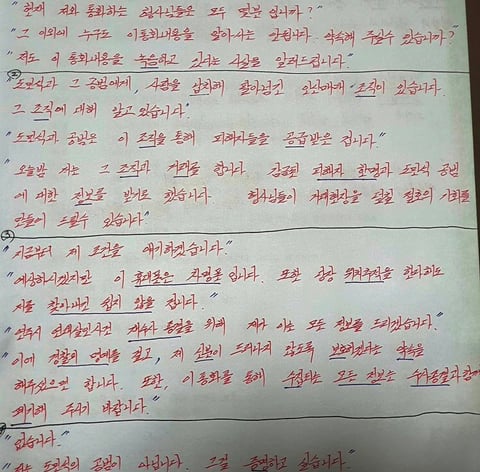 "현재 저와 통화하는 형사님들은 모두 몇분 입니까?"
"그 이외에 누구도 이 통화내용을 알아서는 안됩니다. 약속해 주실수 있습니까?"
"저도 이 통화내용을 녹음하고 있다는 사실을 알려드립니다."
② "도민식과 그 공범에게, 사람을 납치해 팔아넘긴 인신매매 조직이 있습니다.
그 조직에 대해 알고 있습니다."
"도민식과 공범은 이 조직을 통해 피해자들을 공급받은 겁니다."
"오늘밤 저는 그 조직과 거래를 합니다. 감금된 피해자 한명과 도민식 공범
에 대한 정보를 받기로 했습니다. 형사님들이 거래현장을 덮칠 절호의 기회를
만들어 드릴수 있습니다"
③ "지금부터 제 조건을 얘기하겠습니다."
"예상하시겠지만 이 휴대폰은 차명폰 입니다. 또한 당장 위치추적을 한다해도
저를 찾아내긴 쉽지 않을 겁니다."
"연주시 연쇄살인사건 재수사 종결을 위해 제가 아는 모든 정보를 드리겠습니다."
"이에 경찰의 명예를 걸고, 제 신분이 드러나지 않도록 보호하겠다는 약속을
해주셨으면 합니다. 또한, 이 통화를 통해 수집되는 모든 정보는 수사종결과 함께
폐기해 주시기 바랍니다."
"없습니다."
"저는 도민식의 공범이 아닙니다. 그걸 증명하고 싶습니다."